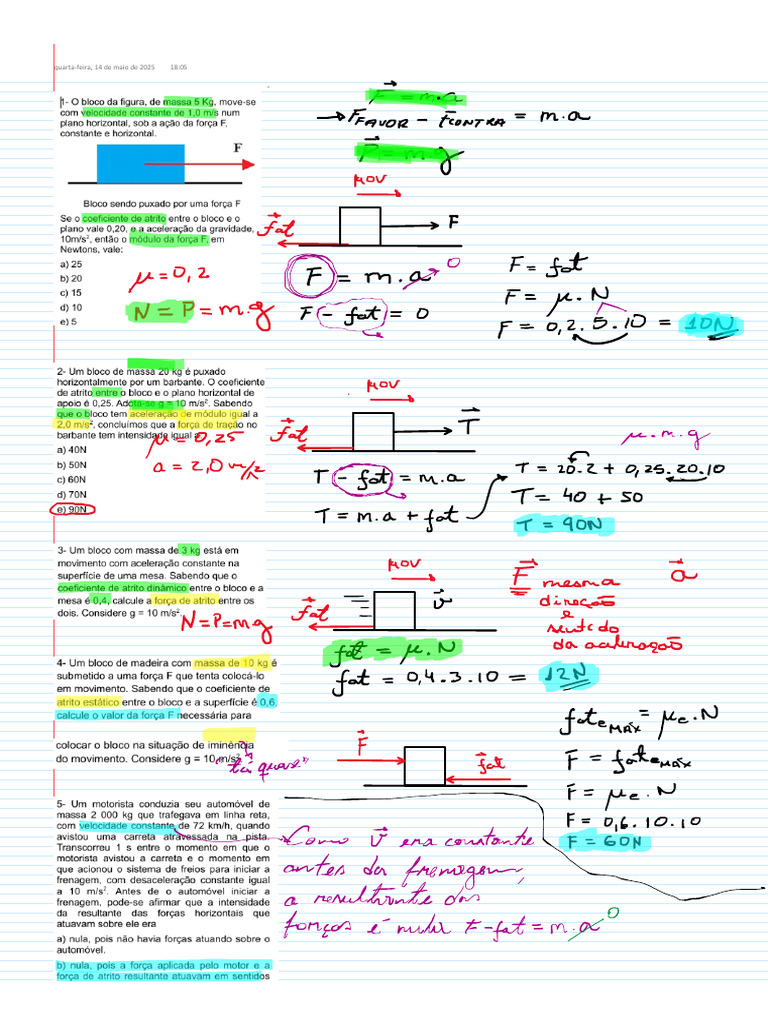 quarta-feira, 14 de maio de 2025 18:05
1- O bloco da figura, de massa 5 Kg, move-se
com velocidade constante de 1,0 m/s num
plano horizontal, sob a ação da força F,
constante e horizontal.
F
Bloco sendo puxado por uma força F
Se o coeficiente de atrito entre o bloco e o
plano vale 0,20, e a aceleração da gravidade,
10m/s², então o módulo da força F, em
Newtons, vale:
a) 25
b) 20
c) 15
d) 10
e) 5
μ = 0,2
N = P = m.g
F = m.a
→ F FAVOR - F CONTRA = m.a
P = m.g
mov
fat
F
F = m.a 0
F - fat = 0
F = fat
F = μ.N
F = 0,2.5.10 = 10N
2- Um bloco de massa 20 kg é puxado
horizontalmente por um barbante. O coeficiente
de atrito entre o bloco e o plano horizontal de
apoio é 0,25. Adota-se g = 10 m/s². Sabendo
que o bloco tem aceleração de módulo igual a
2,0 m/s², concluímos que a força de tração no
barbante tem intensidade igual a
a) 40N
b) 50N
c) 60N
d) 70N
e) 90N
μ = 0,25
a = 2,0 m/s²
mov
fat
T
μ.m.g
T - fat = m.a
T = m.a + fat
T = 20.2 + 0,25.20.10
T = 40 + 50
T = 90N
3- Um bloco com massa de 3 kg está em
movimento com aceleração constante na
superfície de uma mesa. Sabendo que o
coeficiente de atrito dinâmico entre o bloco e a
mesa é 0,4, calcule a força de atrito entre os
dois. Considere g = 10 m/s².
N = P = m.g
mov
fat
v
F mesma a
direção
e
sentido
da aceleração
fat = μ.N
fat = 0,4.3.10 = 12N
4- Um bloco de madeira com massa de 10 kg é
submetido a uma força F que tenta colocá-lo
em movimento. Sabendo que o coeficiente de
atrito estático entre o bloco e a superfície é 0,6,
calcule o valor da força F necessária para
colocar o bloco na situação de iminência
do movimento. Considere g = 10 m/s².
"tá quase"
F
fat
fat e MÁX = μe.N
F = fat e MÁX
F = μe.N
F = 0,6.10.10
F = 60N
5- Um motorista conduzia seu automóvel de
massa 2 000 kg que trafegava em linha reta,
com velocidade constante de 72 km/h, quando
avistou uma carreta atravessada na pista.
Transcorreu 1 s entre o momento em que o
motorista avistou a carreta e o momento em
que acionou o sistema de freios para iniciar a
frenagem, com desaceleração constante igual
a 10 m/s². Antes de o automóvel iniciar a
frenagem, pode-se afirmar que a intensidade
da resultante das forças horizontais que
atuavam sobre ele era
a) nula, pois não havia forças atuando sobre o
automóvel.
b) nula, pois a força aplicada pelo motor e a
força de atrito resultante atuavam em sentidos
Como v era constante
antes da fremagem,
a resultante das
forças é nula F - fat = m.a 0